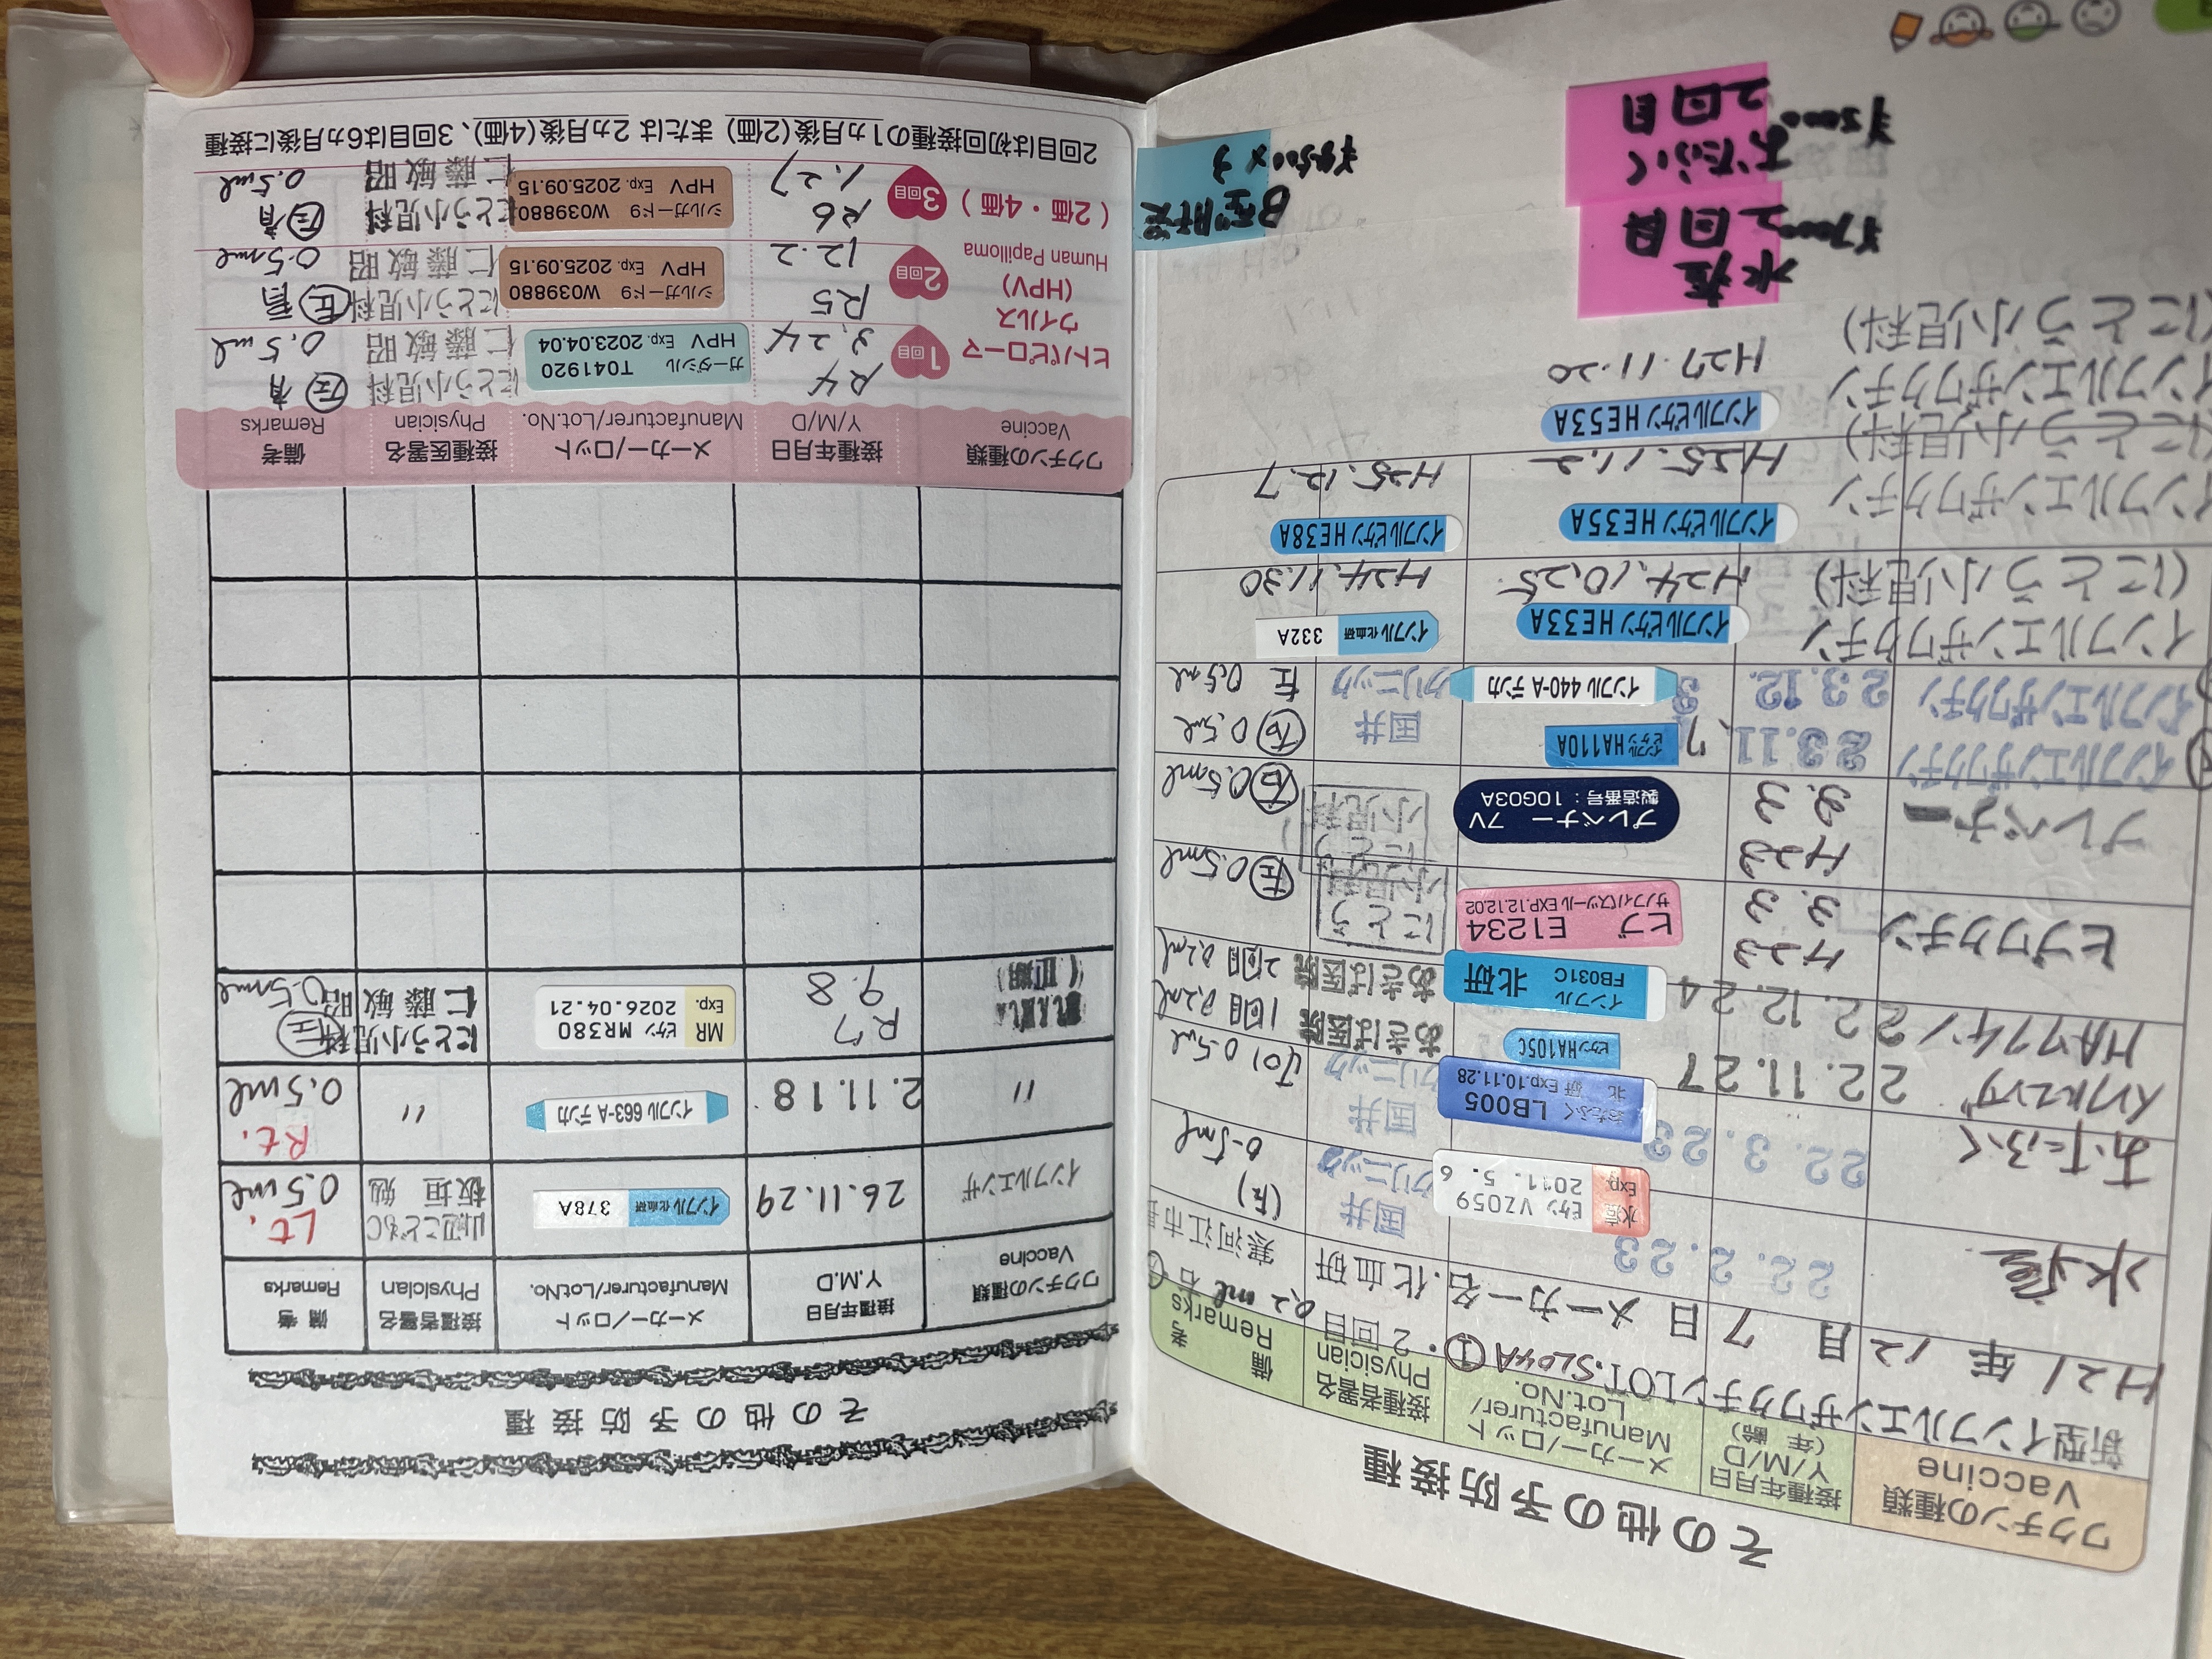 その他の予防接種
ワクチンの種類
Vaccine
接種年月日
Y/M/D
(年齢)
メーカー/ロット
Manufacturer/
Lot.NO.
接種者署名
Physician
備 考
Remarks
新型インフルエンザワクチンLOT.SL04A ①・2回目 0.2ml 右
H21年 12月 7日 メーカー名.化血研 寒河江市
水痘 22.2.23 水痘 ビケン VZ059 Exp. 2011.5.6 国井クリニック (左) 0.5ml
おたふく 22.3.23 おたふく LB005 北 研 Exp.10.11.28 国井クリニック 0.5ml
インフルエンザ 22.11.27 ビケンHA105C あきば医院 1回目 0.2ml
HAワクチン 22.12.24 インフル FB031C 北研 あきば医院 2回目 0.2ml
ヒブワクチン H23 3.3 ヒブ E1234 サノフィパスツール EXP.12.12.02 にとう小児科 左 0.5ml
プレベナー H23 3.3 プレベナー 7V 製造番号:10G03A にとう小児科 右 0.5ml
インフルエンザワクチン 23.11.7 インフルビケンHA110A 国井 右 0.5ml
インフルエンザワクチン 23.12.3 インフル 440-A デンカ クリニック 左 0.5ml
インフルエンザワクチン インフルビケンHE33A インフル 化血研 332A
(にとう小児科) H24.10.25 H24.11.30
インフルエンザワクチン インフルビケンHE35A インフルビケンHE38A
(にとう小児科) H25.11.2 H25.12.7
インフルエンザワクチン インフルビケンHE53A
(にとう小児科) H27.11.20
水痘
2回目
¥7000
おたふく
2回目
¥5000
B型肝炎
¥4500×3
その他の予防接種
ワクチンの種類
Vaccine
接種年月日
Y.M.D
メーカー/ロット
Manufacturer/Lot.No.
接種者署名
Physician
備 考
Remarks
インフルエンザ 26.11.29 インフル 化血研 378A 山辺こどもC 板垣 勉 Lt. 0.5ml
〃 2.11.18 インフル 663-A デンカ 〃 Rt. 0.5ml
(Ⅱ期) R7 9.8 MR ビケン MR380 Exp. 2026.04.21 にとう小児科 仁藤敏昭 左 0.5ml
ワクチンの種類
Vaccine
接種年月日
Y/M/D
メーカー/ロット
Manufacturer/Lot.No.
接種医署名
Physician
備考
Remarks
ヒトパピローマ
ウイルス
(HPV)
Human Papilloma
(2価・4価)
1回目 R4 3.24 ガーダシル T041920 HPV Exp. 2023.04.04 にとう小児科 仁藤敏昭 左 有 0.5ml
2回目 R5 12.2 シルガード9 W039880 HPV Exp. 2025.09.15 にとう小児科 仁藤敏昭 左 有 0.5ml
3回目 R6 1.27 シルガード9 W039880 HPV Exp. 2025.09.15 にとう小児科 仁藤敏昭 左 有 0.5ml
2回目は初回接種の1カ月後(2価)または 2カ月後(4価)、3回目は6カ月後に接種